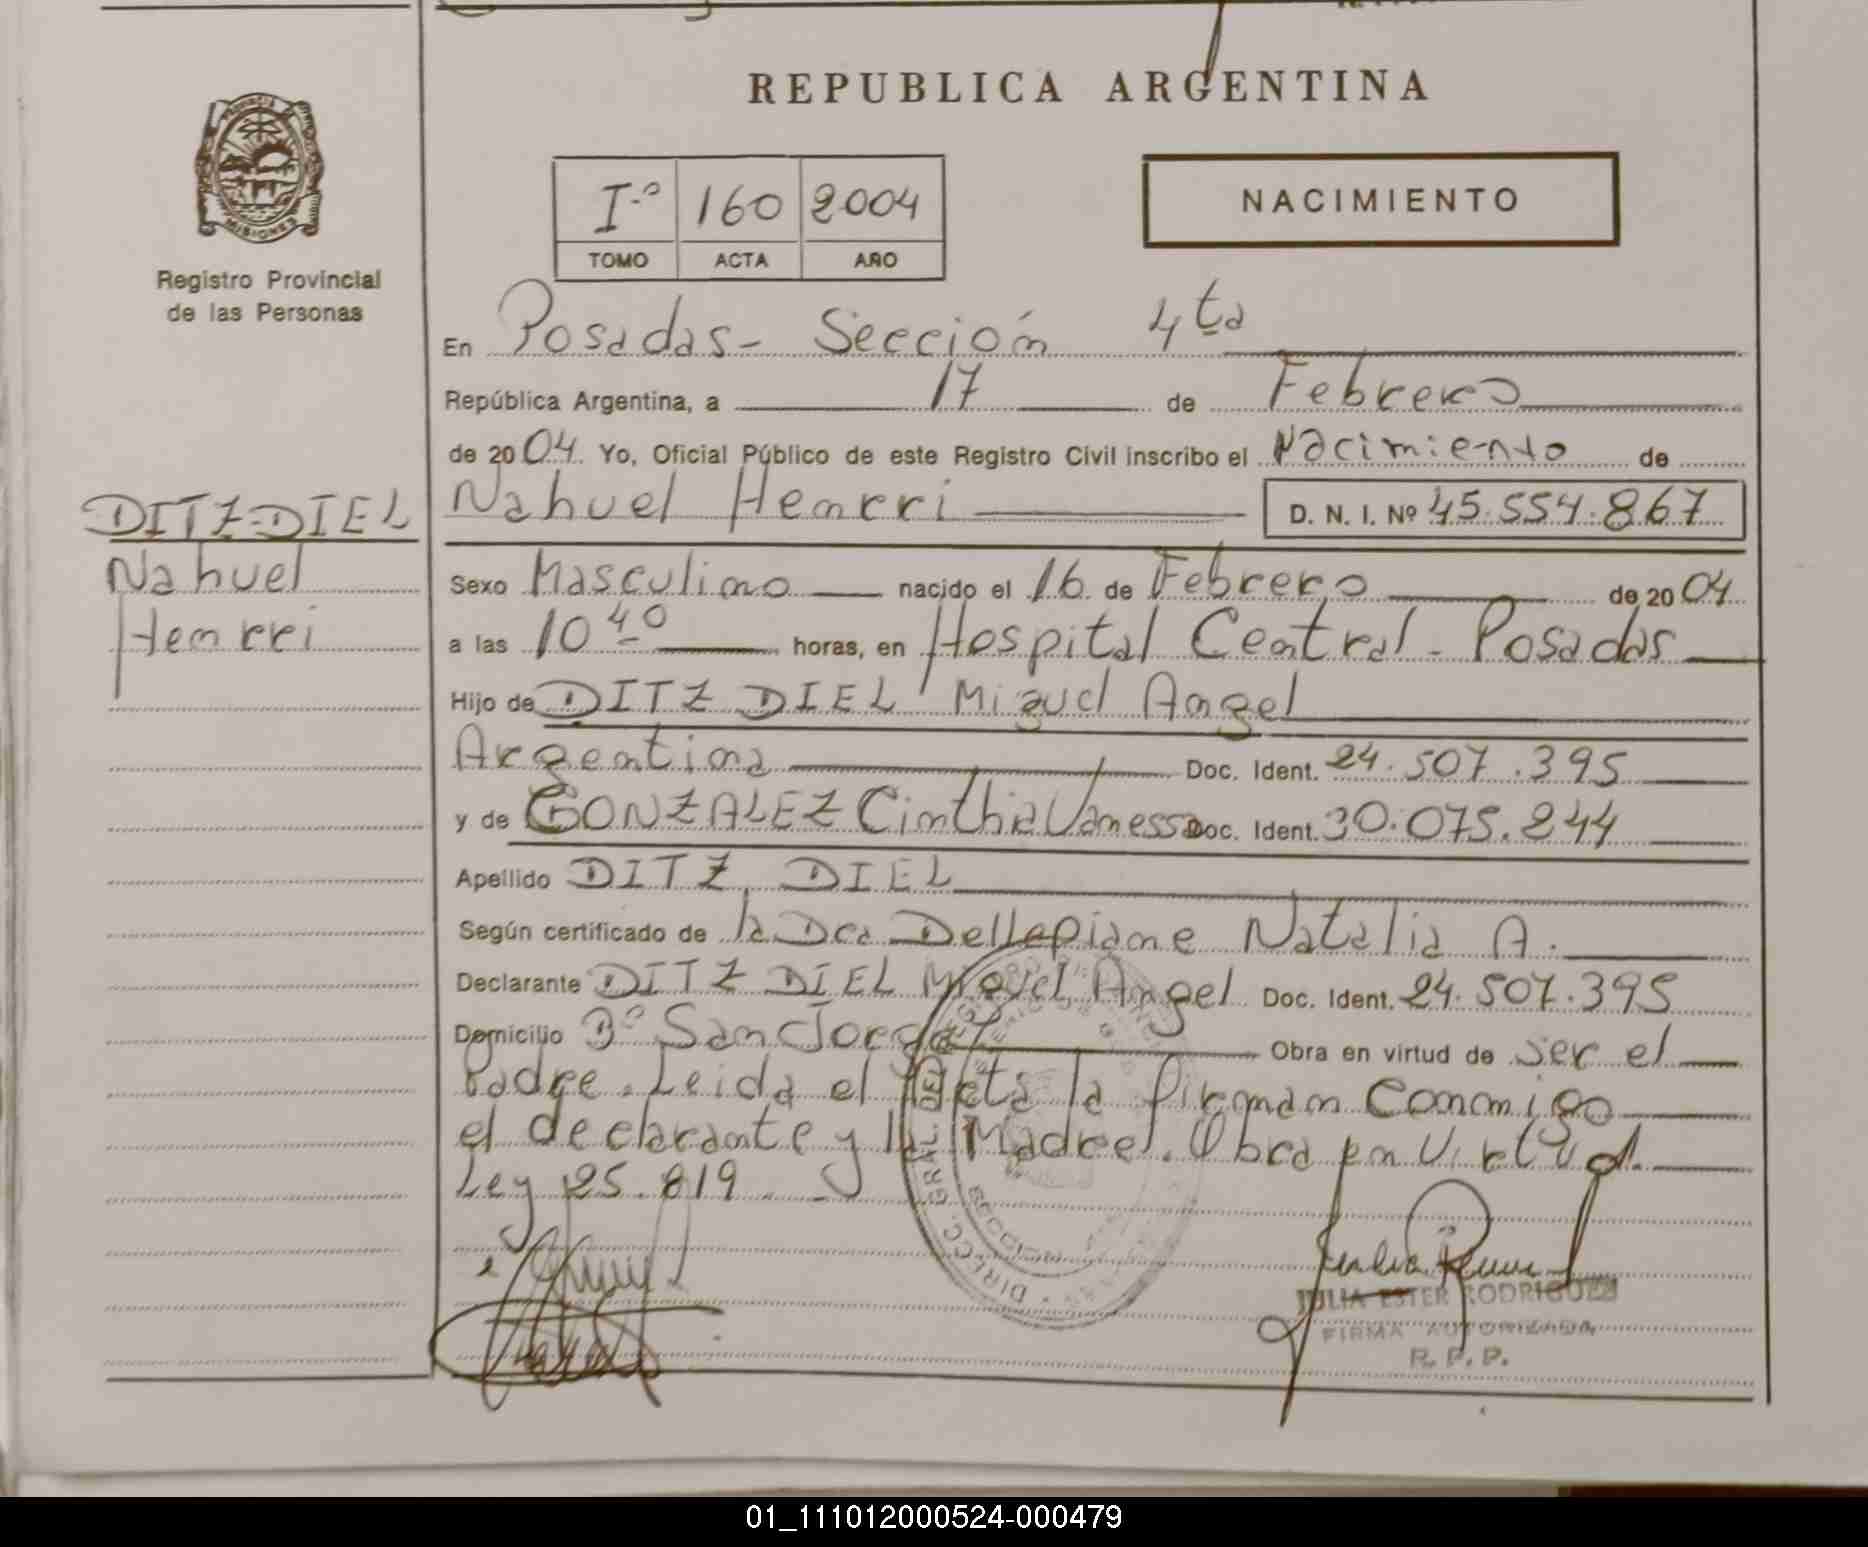 REPUBLICA ARGENTINA
PROVINCIA
MISIONES
Registro Provincial
de las Personas
I.º 160 2004
TOMO ACTA AÑO
NACIMIENTO
En Posadas - Sección 4ta
República Argentina, a 17 de Febrero
de 2004. Yo, Oficial Público de este Registro Civil inscribo el Nacimiento de
Nahuel Henrri D. N. I. Nº 45.554.867
DITZ-DIEL
Nahuel
Henrri
Sexo Masculino nacido el 16 de Febrero de 2004
a las 10 40 horas, en Hospital Central - Posadas
Hijo de DITZ DIEL Miguel Angel
Argentina Doc. Ident. 24.507.395
y de GONZALEZ Cinthia Vanessa Doc. Ident. 30.075.244
Apellido DITZ DIEL
Según certificado de la Dra Dellepiane Natalia A.
Declarante DITZ DIEL Miguel Angel Doc. Ident. 24.507.395
Domicilio Bº San Jorge Obra en virtud de ser el
Padre. Leida el Acta la firman Conmigo
el declarante y la Madre. Obra en Virtud.
Ley 25.819.
DIRECC. GRAL. DEL
JULIA ESTER RODRIGUEZ
FIRMA AUTORIZADA
R. P. P.
01_111012000524-000479